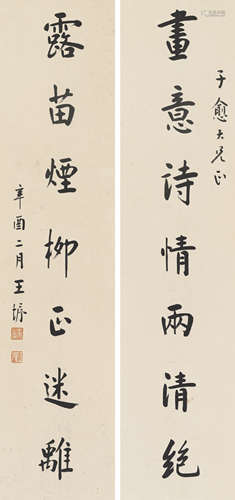 子愈大兄正
畫意詩情兩清絕
露苗煙柳正迷離
辛酉二月王垿